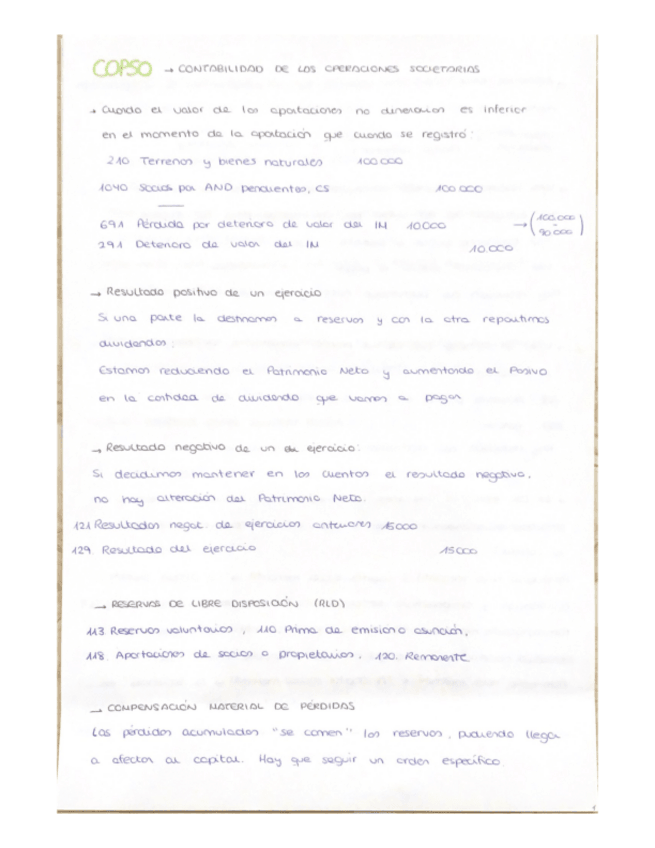 COPSO → CONTABILIDAD DE LAS OPERACIONES SOCIETARIAS
→ Cuando el valor de las aportaciones no dinerarias es inferior
en el momento de la aportación que cuando se registró:
210 Terrenos y bienes naturales 100.000
1040 Socios por AND pendientes, CS 100.000
691 Pérdida por deterioro de valor del IM 10.000 → (100.000 - 90.000)
291 Deterioro de valor del IM 10.000
→ Resultado positivo de un ejercicio
Si una parte la destinamos a reservas y con la otra repartimos
dividendos:
Estamos reduciendo el Patrimonio Neto y aumentando el Pasivo
en la cantidad de dividendo que vamos a pagar
→ Resultado negativo de un ejercicio:
Si decidimos mantener en las cuentas el resultado negativo,
no hay alteración del Patrimonio Neto.
121 Resultados negat. de ejercicios anteriores 15000
129 Resultado del ejercicio 15000
→ RESERVAS DE LIBRE DISPOSICIÓN (RLD)
113 Reservas voluntarias, 110 Prima de emisión o asunción,
118. Aportaciones de socios o propietarios. 120. Remanente
→ COMPENSACIÓN MATERIAL DE PÉRDIDAS
Las pérdidas acumuladas "se comen" las reservas, pudiendo llegar
a afectar al capital. Hay que seguir un orden específico.